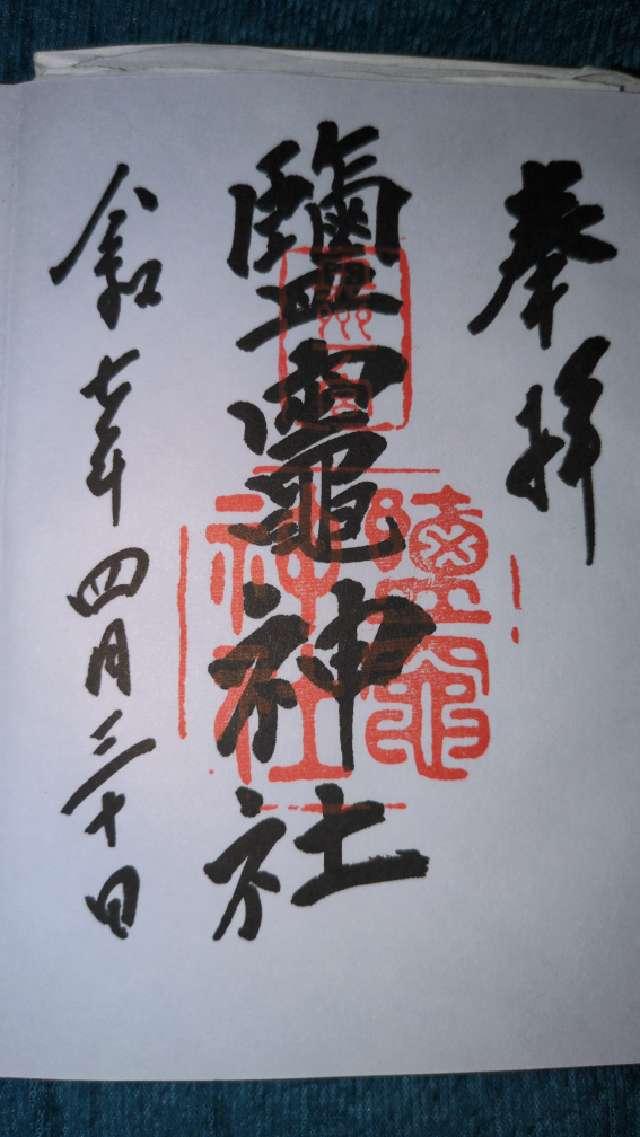 奉拝
鹽竈神社
令和七年四月三十日
鹽竈
神社